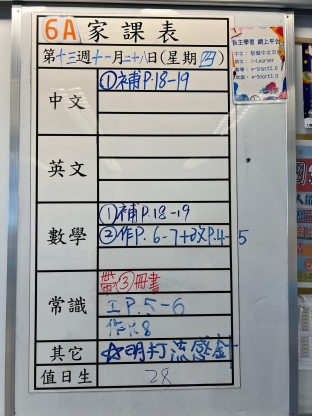 6A 家課表
第十三週十一月二十八日(星期四)
中文 ①補P.18-19
英文
數學 ①補P.18-19
②作P.6-7+改P.4-5
常識 帶③冊書
工P.5-6
作P.8
其它 ☆明打流感針
值日生 28
自主學習 網上平台